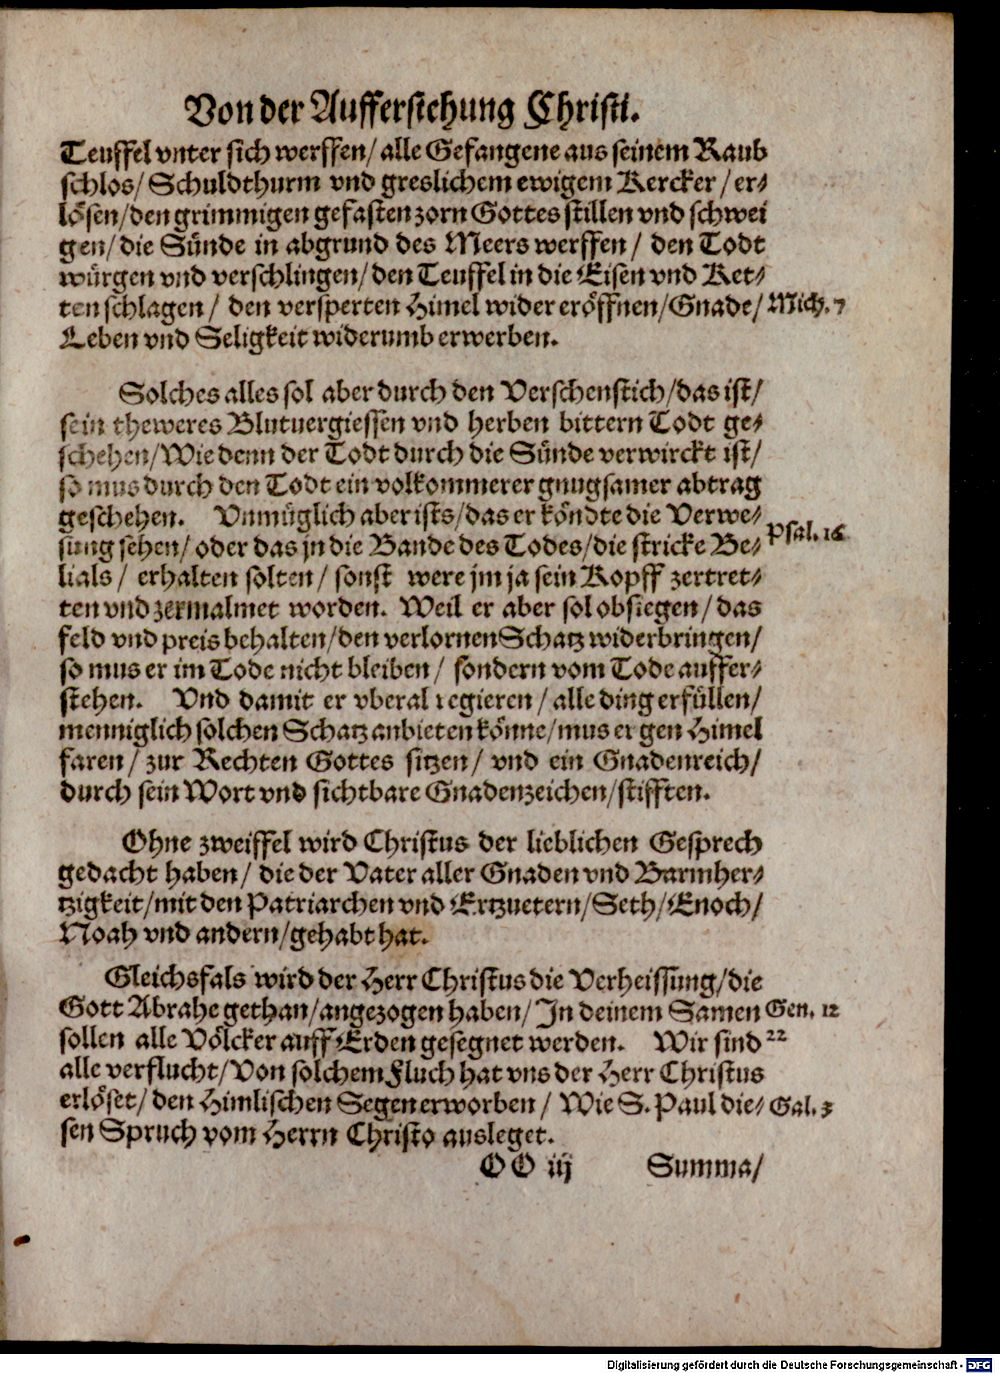 Von der Aufferstehung Christi.
Teuffel vnter sich werffen/ alle Gefangene aus seinem Raub
schlos/ Schuldthurm vnd greslichem ewigem Kercker/ er⸗
lösen/ den grimmigen gefasten zorn Gottes stillen vnd schwei
gen/ die Sünde in abgrund des Meers werffen/ den Todt
würgen vnd verschlingen/ den Teuffel in die Eisen vnd Ket⸗
ten schlagen/ den versperten Himel wider eröffnen/ Gnade/ Mich. 7
Leben vnd Seligkeit widerumb erwerben.
Solches alles sol aber durch den Verschenstich/ das ist/
sein theweres Blutuergiessen vnd herben bittern Todt ge⸗
schehen/ Wie denn der Todt durch die Sünde verwirckt ist/
so mus durch den Todt ein volkommerer gnugsamer abtrag
geschehen. Vnmüglich aber ists/ das er köndte die Verwe⸗
sung sehen/ oder das jn die Bande des Todes/ die stricke Be⸗ Psal. 16
lials/ erhalten solten/ sonst were jm ja sein Kopff zertret⸗
ten vnd zermalmet worden. Weil er aber sol obsiegen/ das
feld vnd preis behalten/ den verlornen Schatz widerbringen/
so mus er im Tode nicht bleiben/ sondern vom Tode auffer⸗
stehen. Vnd damit er vberal regieren/ alle ding erfüllen/
menniglich solchen Schatz anbieten könne/ mus er gen Himel
faren/ zur Rechten Gottes sitzen/ vnd ein Gnadenreich/
durch sein Wort vnd sichtbare Gnadenzeichen/ stifften.
Ohne zweiffel wird Christus der lieblichen Gesprech
gedacht haben/ die der Vater aller Gnaden vnd Barmher⸗
tzigkeit/ mit den Patriarchen vnd Ertzuetern/ Seth/ Enoch/
Noah vnd andern/ gehabt hat.
Gleichsfals wird der Herr Christus die Verheissung/ die
Gott Abrahe gethan/ angezogen haben/ In deinem Samen Gen. 12
sollen alle Völcker auff Erden gesegnet werden. Wir sind 22
alle verflucht/ Von solchem Fluch hat vns der Herr Christus
erlöset/ den Himlischen Segen erworben/ Wie S. Paul die⸗ Gal. 3
sen Spruch vom Herrn Christo ausleget.
OO iij Summa/
Digitalisierung gefördert durch die Deutsche Forschungsgemeinschaft - DFG